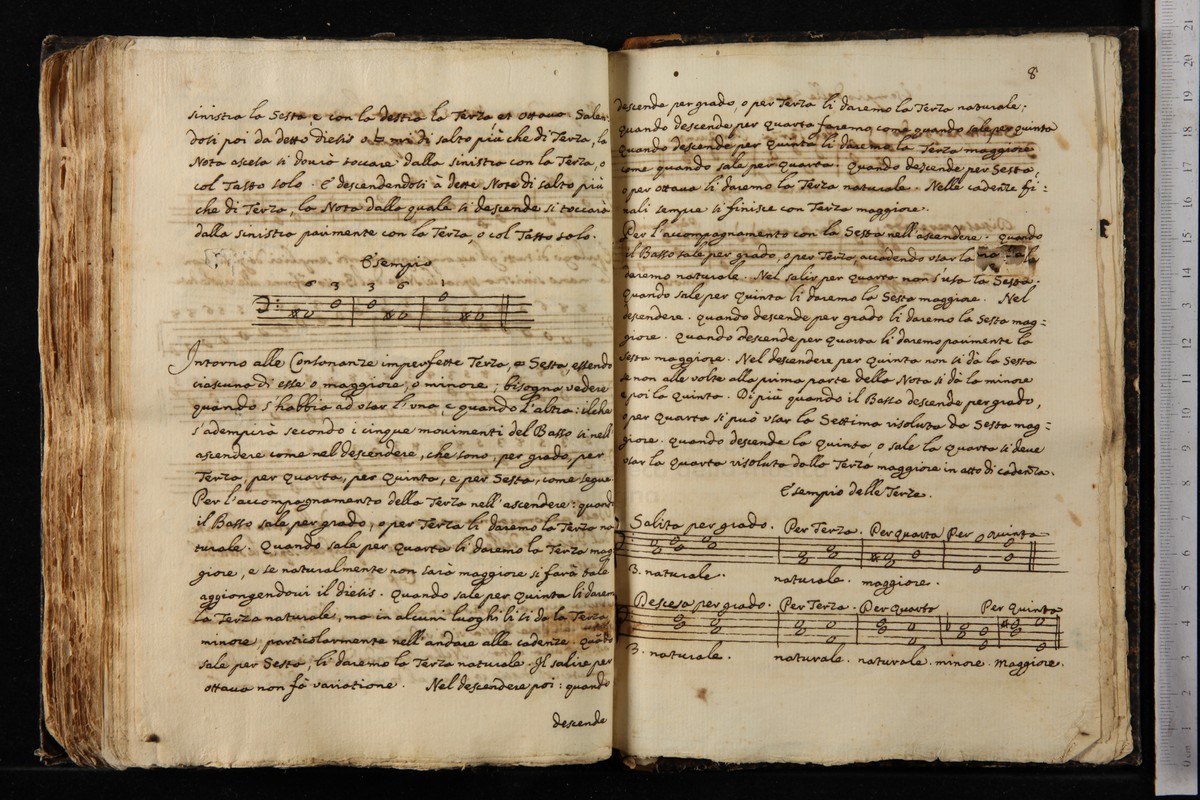 sinistra la Sesta, e con la destra la Terza et ottava. Salen-
doli poi da detto diesis o mi di salto più che di Terza, la
Nota ascesa si dovrà toccare dalla sinistra con la Terza, o
col Tasto solo. E descendendosi à dette Note di salto più
che di Terza, la Nota dalla quale si descende si toccarà
dalla sinistra parimente con la Terza, o col Tasto solo.
Esempio
6 3 3 6 1
Intorno alle Consonanze imperfette Terza, e Sesta, essendo
ciascuna di esse o maggiore, o minore; bisogna vedere
quando s'habbia ad usar l'una, e quando l'altra: ilche
s'adempirà secondo i cinque movimenti del Basso sì nell'
ascendere come nel descendere, che sono, per grado, per
Terza, per quarta, per Quinta, e per Sesta, come segue.
Per l'accompagnamento della Terza nell'ascendere: quando
il Basso sale per grado, o per Terza li daremo la Terza na
turale. Quando sale per quarta li daremo la Terza mag
giore, e se naturalmente non sarà maggiore si farà tale
aggiongendovi il diesis. Quando sale per quinta li darem
la Terza naturale, ma in alcuni luoghi li si dà la Terza
minore, particolarmente nell'andare alle cadenze. Quãdo
sale per Sesta, li daremo la Terza naturale. Il salire per
ottava non fà variatione. Nel descendere poi: quando
descende
8
descenda per grado, o per Terza li daremo la Terza naturale;
quando descende per quarta faremo come quando sale per quinta
quando descende per quinta li daremo la Terza maggiore
come quando sale per quarta. Quando descende per Sesta,
o per ottava li daremo la Terza naturale. Nelle cadenze fi:
nali sempre si finisce con Terza maggiore.
Per l'accompagnamento con la Sesta nell'ascendere: quando
il Basso sale per grado, o per Terzo, accadendo usar la
daremo naturale. Nel salir per quarto non s'usa la Sesta;
quando sale per quinta li daremo la Sesta maggiore. Nel
descendere. quando descende per grado li daremo la Sesta mag=
giore. Quando descende per quarta li daremo parimente la
Sesta maggiore. Nel descendere per quinta non si dà la Sesta
se non alle volte alla prima parte della Nota si dà la minore
e poi la quinta. Di più quando il Basso descende per grado,
o per quarta si può usar la Settima risoluta da Sesta mag=
giore. quando descende la quinta, o sale la quarta si deve
usar la quarta risoluta dalla Terza maggiore in atto di cadenza.
Esempio delle Terze.
Salita per grado. Per Terza. Per quarta Per quinta
3. naturale. naturale. maggiore.
Descesa per grado. Per Terza. Per Quarta Per Quinta
3. naturale. naturale. naturale. minore. maggiore.